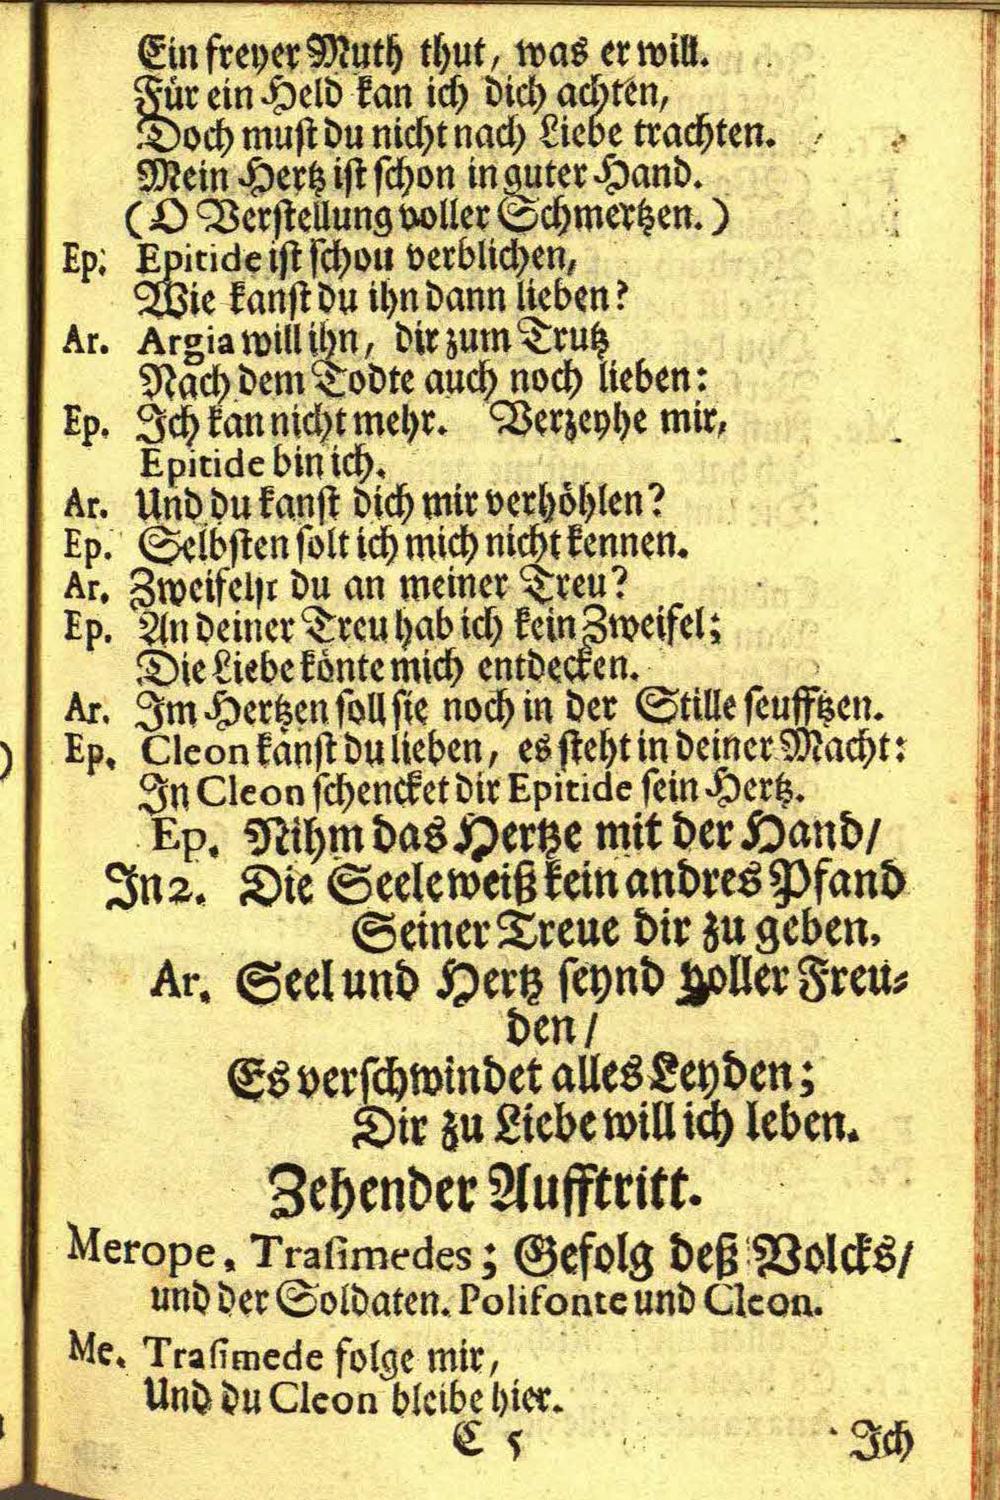 Ein freyer Muth thut, was er will.
Für ein Held kan ich dich achten,
Doch must du nicht nach Liebe trachten.
Mein Hertz ist schon in guter Hand.
(O Verstellung voller Schmertzen.)
Ep: Epitide ist schou verblichen,
Wie kanst du ihn dann lieben?
Ar. Argia will ihn, dir zum Trutz
Nach dem Todte auch noch lieben:
Ep. Ich kan nicht mehr. Verzeyhe mir,
Epitide bin ich.
Ar. Und du kanst dich mir verhöhlen?
Ep. Selbsten solt ich mich nicht kennen.
Ar. Zweifelst du an meiner Treu?
Ep. An deiner Treu hab ich kein Zweifel;
Die Liebe könte mich entdecken.
Ar. Im Hertzen soll sie noch in der Stille seufftzen.
Ep. Cleon kanst du lieben, es steht in deiner Macht:
In Cleon schencket dir Epitide sein Hertz.
Ep. Nihm das Hertze mit der Hand/
In 2. Die Seele weiß kein andres Pfand
Seiner Treue dir zu geben.
Ar. Seel und Hertz seynd voller Freu-
den/
Es verschwindet alles Leyden;
Dir zu Liebe will ich leben.
Zehender Aufftritt.
Merope, Trasimedes; Gefolg deß Volcks/
und der Soldaten. Polifonte und Cleon.
Me. Trasimede folge mir,
Und du Cleon bleibe hier.
C 5 Ich